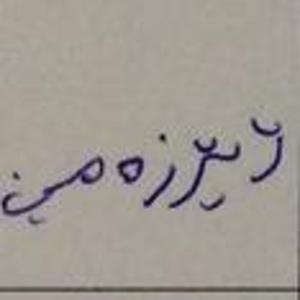 ژێرزەمین